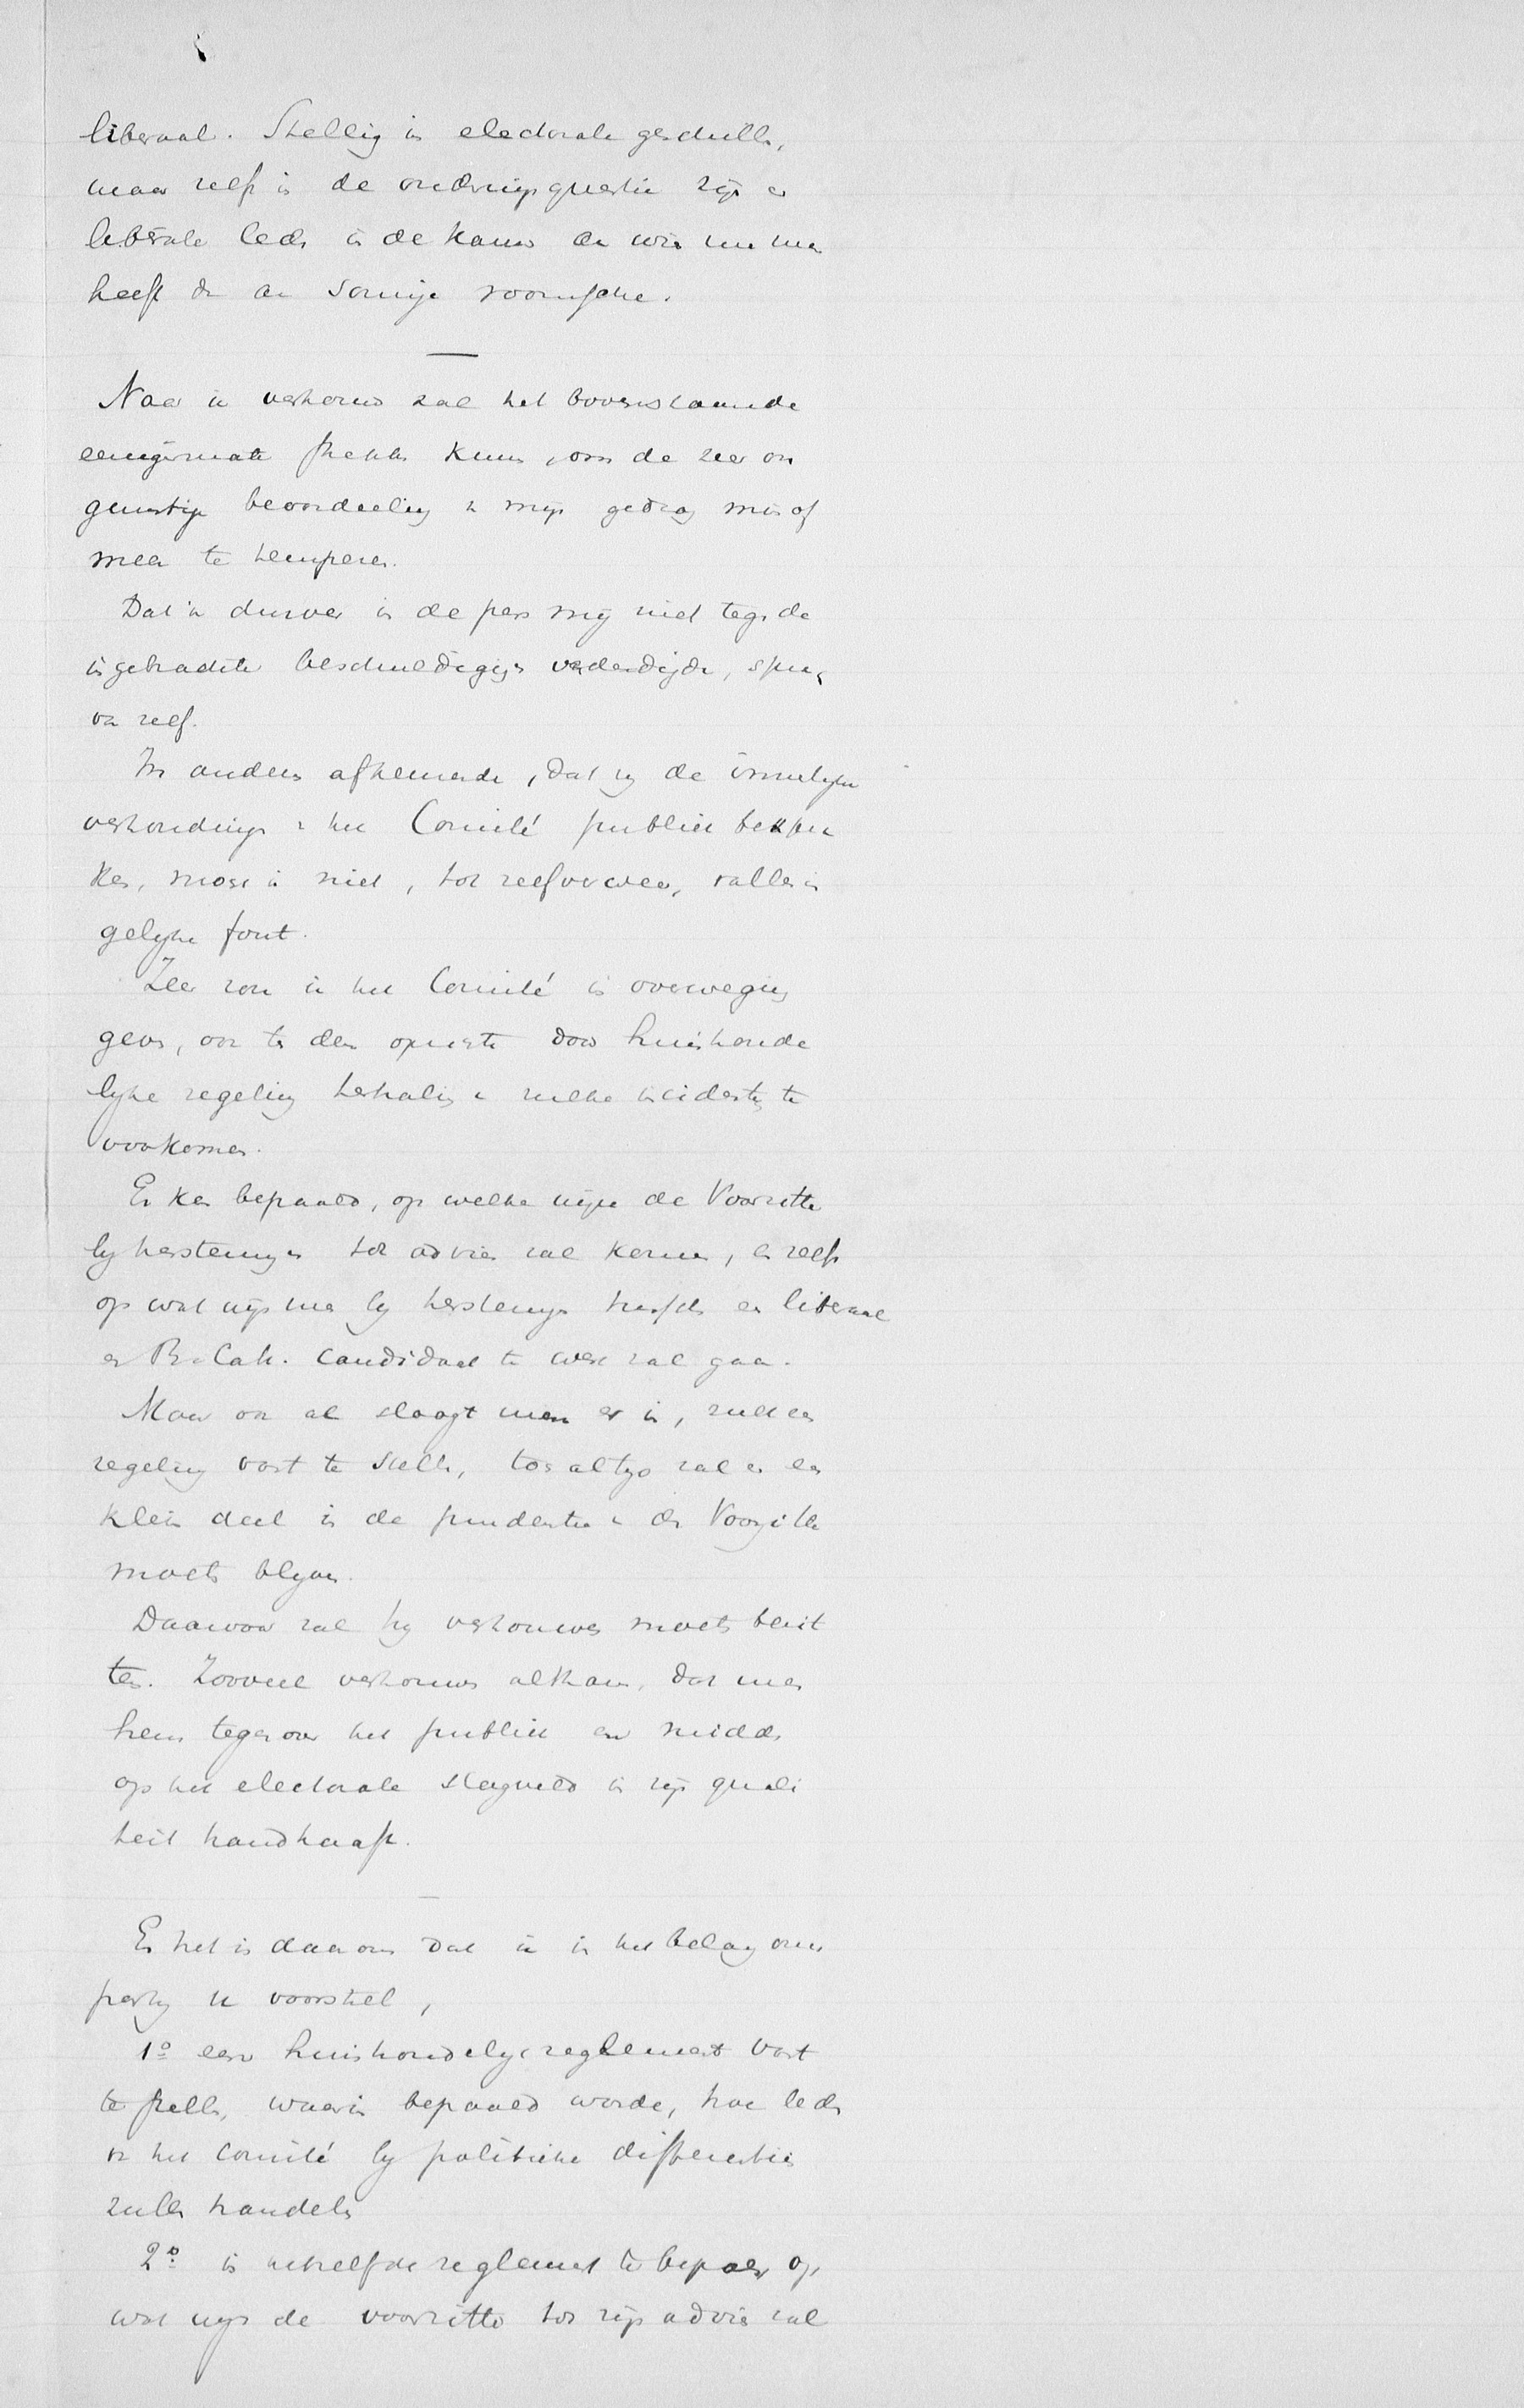 liberaal. Stellig in electorale geschillen,
maar zelfs in de onderwijsquestie zijn er
liberale leden in de Kamer aan wie men meer
heeft dan aan sommige roomsche.
Naar ik vertrouw zal het bovenstaande
eenigermate strekken kunnen, om de zeer on
gunstige beoordeeling van mijn gedrag min of
meer te temperen.
Dat ik dunver in de pers mij niet tegen de
ingebrachte beschuldigingen verdedigde, spreekt
van zelf.
In anderen afkeurende, dat zij de innerlijke
verhoudingen van het Comité publiek bespra
ken, mocht ik niet, tot zelfverweer, vallen in
gelijke fout.
Zeer zou ik het Comité in overweging
geven, om ten dezen opzichte door huishoude
lijke regeling herhaling van zulke incidenten te
voorkomen.
Er kan bepaald, op welke wijze de Voorzitter
bij herstemmingen tot advies zal komen, en zelfs
op wat wijs men bij herstemming tusschen een liberaal
en R. Cath. candidaat te werk zal gaan.
Maar ook al slaagt men er in, zulk een
regeling vast te stellen, toch altijd zal er een
klein deel in de prudentie van den Voorzitter
moeten blijven.
Daarvoor zal hij vertrouwen moeten bezit
ten. Zooveel vertrouwen althans, dat men
hem tegenover het publiek en midden
op het electorale slagveld in zijn quali
teit handhaaft.
En het is daarom dat ik in het belang onzer
partij u voorstel,
1º een huishoudelijk reglement vast
te stellen, waarin bepaald worde, hoe leden
van het Comité bij politieke differentiën
zullen handelen
2º in hetzelfde reglement te bepalen op
wat wijs de voorzitter tot zijn advies zal